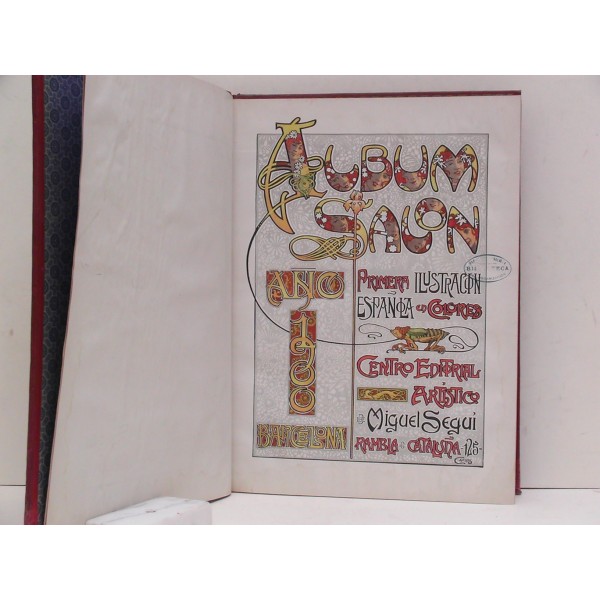 ALBUM
SALON
AÑO
1900
BARCELONA
PRIMERA ILUSTRACIÓN
ESPAÑOLA EN COLORES
CENTRO EDITORIAL
ARTÍSTICO
DE MIGUEL SEGUI
RAMBLA DE CATALUÑA 125